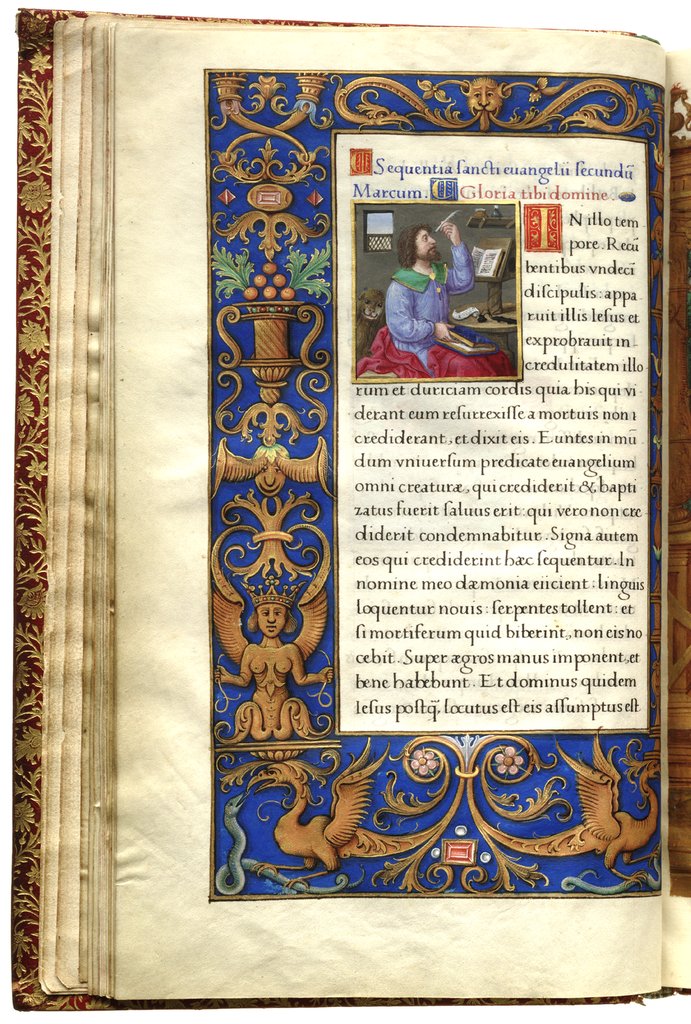 Sequentia sancti euangelii secundū
Marcum. Gloria tibi domine.
IN illo tem
pore. Recū
bentibus vndecī
discipulis: appa
ruit illis Iesus et
exprobrauit in
credulitatem illo
rum et duriciam cordis quia his qui vi
derant eum resurrexisse a mortuis non
crediderant, et dixit eis. Euntes in mū
dum vniuersum predicate euangelium
omni creaturæ, qui crediderit & bapti
zatus fuerit saluus erit: qui vero non cre
diderit condemnabitur. Signa autem
eos qui crediderint hæc sequentur. In
nomine meo dæmonia eiicient: linguis
loquentur nouis: serpentes tollent: et
si mortiferum quid biberint, non eis no
cebit. Super ægros manus imponent, et
bene habebunt. Et dominus quidem
Iesus postq̄, locutus est eis assumptus est